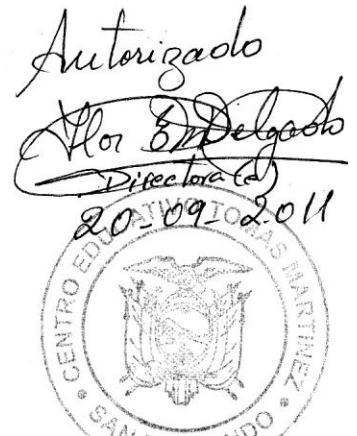 Autorizado
Flor E. Delgado
Directora (e)
20-09-2011
CENTRO EDUCATIVO TOMAS MARTINEZ
SAN